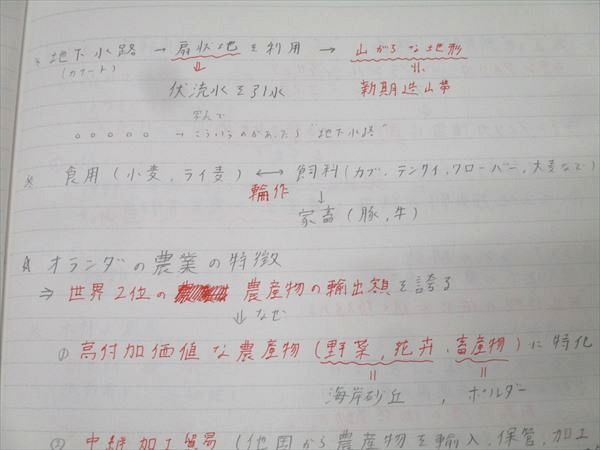 * 地下水路 → 扇状地を利用 → 山がちな地形
(カナート) ⇓ 〃
伏流水を引水 新期造山帯
並んで
○ ○ ○ ○ ○ → こういうのがあったら "地下水路"
※ 食用(小麦, ライ麦) ⟷ 飼料(カブ, テンサイ, クローバー, 大麦など)
輪作 ↓
家畜(豚, 牛)
☆ オランダの農業の特徴
⇒ 世界2位の 農産物の輸出額を誇る
⇓ なぜ
① 高付加価値な農産物(野菜, 花卉, 畜産物)に特化
〃 〃
海岸砂丘 , ポルダー
② 中継加工貿易(他国から農産物を輸入, 保管, 加工